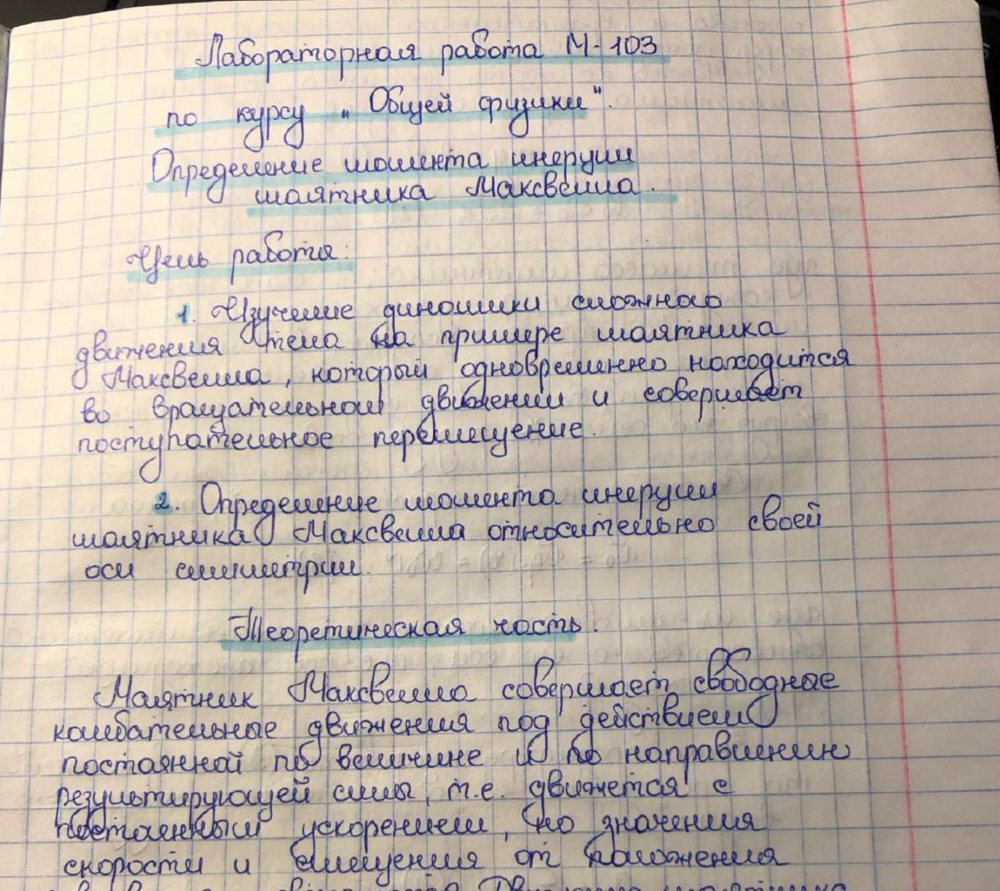 Лабораторная работа М-103
по курсу „Общей физики".
Определение момента инерции
маятника Максвелла.
Цель работы:
1. Изучение динамики сложного
движения тела на примере маятника
Максвелла, который одновременно находится
во вращательном движении и совершает
поступательное перемещение.
2. Определение момента инерции
маятника Максвелла относительно своей
оси симметрии.
Теоретическая часть.
Маятник Максвелла совершает свободные
колебательные движения под действием
постоянной по величине и по направлению
результирующей силы, т.е. движется с
постоянным ускорением, но значения
скорости и смещения от положения